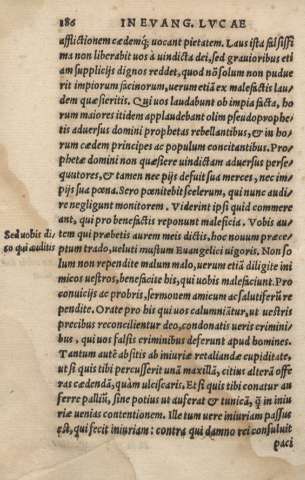 186 IN EVANG. LVCAE
afflictionem cædemq́; uocant pietatem. Laus ista falsissi
ma non liberabit uos à uindicta dei, sed grauioribus eti
am supplicijs dignos reddet, quod nō solum non pudue
rit impiorum facinorum, uerum etiā ex malefactis lau-
dem quæsieritis. Qui uos laudabunt ob impia facta, ho
rum maiores itidem applaudebant olim pseudoprophe-
tis aduersus domini prophetas rebellantibus, & in ho-
rum cædem principes ac populum concitantibus. Pro-
phetæ domini non quæsiere uindictam aduersus perse-
quutores, & tamen nec pijs defuit sua merces, nec im-
pijs sua pœna. Sero pœnitebit scelerum, qui nunc audi-
re negligunt monitorem. Viderint ipsi quid commere
ant, qui pro benefactis reponunt maleficia. Vobis au-
Sed uobis di
co qui auditis
tem qui præbetis aurem meis dictis, hoc nouum præce-
ptum trado, ueluti mustum Euangelici uigoris. Non so
lum non rependite malum malo, uerum etiā diligite ini
micos uestros, benefacite his, qui uobis malefaciunt. Pro
conuicijs ac probris, sermonem amicum ac salutiferū re
pendite. Orate pro his qui uos calumniātur, ut uestris
precibus reconcilientur deo, condonatis ueris crimini-
bus, qui uos falsis criminibus deferunt apud homines.
Tantum autē absitis ab iniuriæ retaliandæ cupiditate,
ut si quis tibi percusserit unā maxillā, citius alterā offe
ras cædendā, quàm ulciscaris. Et si quis tibi conatur au
ferre palliū, sine potius ut auferat & tunicā, q̄ in iniu
riæ uenias contentionem. Ille tum uere iniuriam passus
est, qui fecit iniuriam: contra qui damno rei consuluit
paci